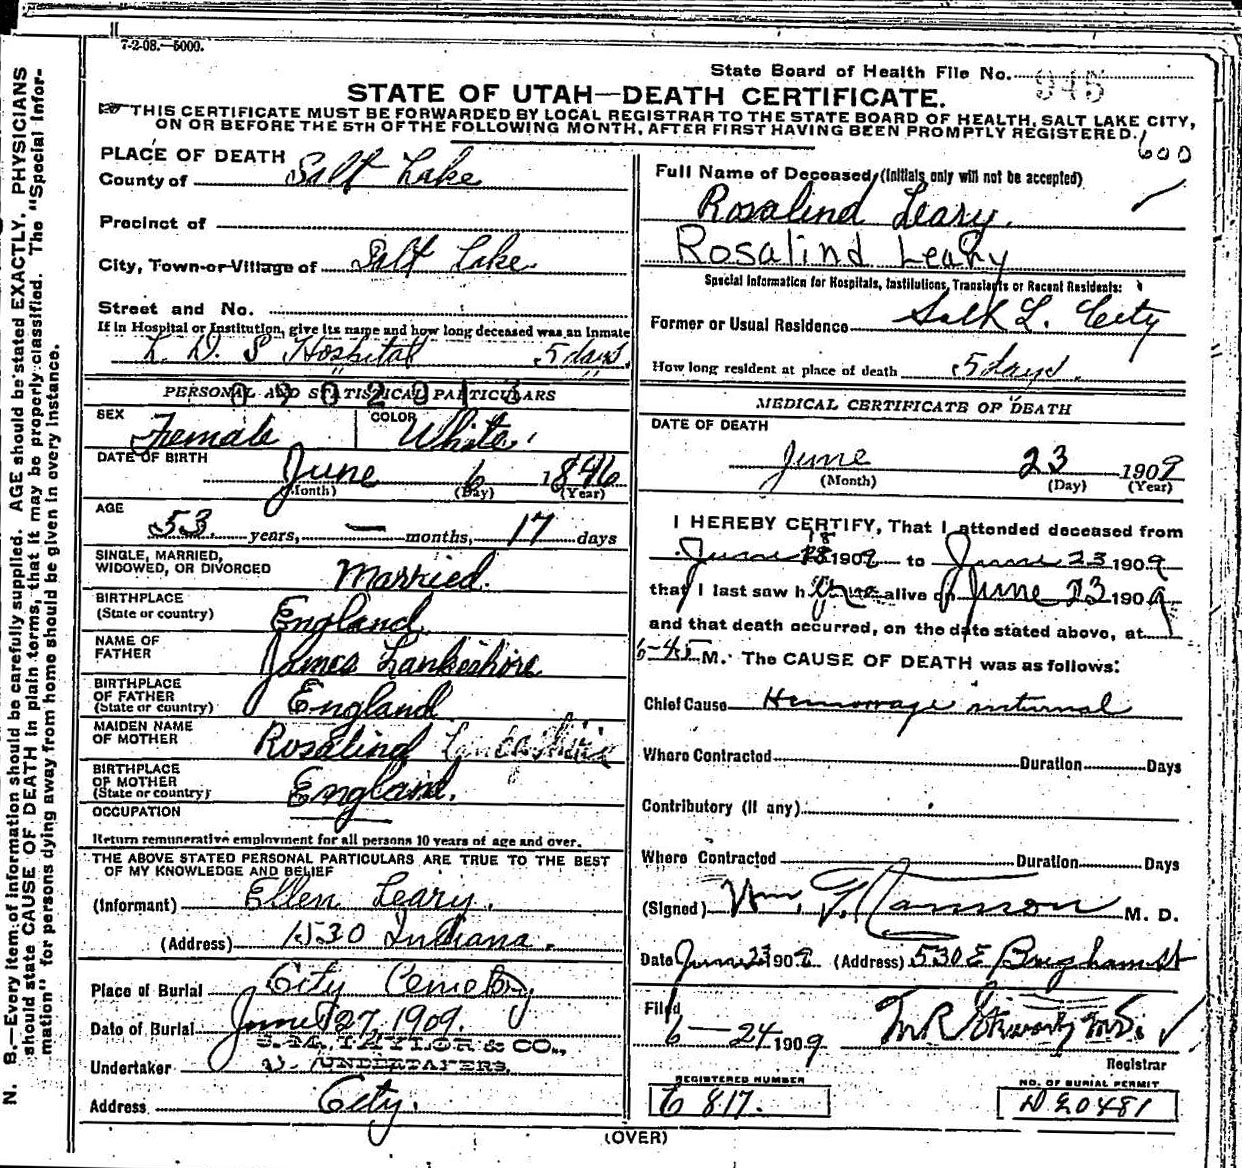 7-2-08.—5000.
State Board of Health File No. 945
STATE OF UTAH—DEATH CERTIFICATE.
THIS CERTIFICATE MUST BE FORWARDED BY LOCAL REGISTRAR TO THE STATE BOARD OF HEALTH, SALT LAKE CITY,
ON OR BEFORE THE 5TH OF THE FOLLOWING MONTH, AFTER FIRST HAVING BEEN PROMPTLY REGISTERED.
600
PLACE OF DEATH
County of Salt Lake
Precinct of
City, Town or Village of Salt Lake
Street and No.
If in Hospital or Institution, give its name and how long deceased was an Inmate
L. D. S Hospital 5 days
PERSONAL AND STATISTICAL PARTICULARS
SEX Female COLOR White
DATE OF BIRTH
June 6 1846
(Month) (Day) (Year)
AGE
53 years, — months, 17 days
SINGLE, MARRIED,
WIDOWED, OR DIVORCED Married.
BIRTHPLACE
(State or country) England
NAME OF
FATHER James Lankeshire
BIRTHPLACE
OF FATHER
(State or country) England
MAIDEN NAME
OF MOTHER Rosalind Lancashire
BIRTHPLACE
OF MOTHER
(State or country) England.
OCCUPATION
Return remunerative employment for all persons 10 years of age and over.
THE ABOVE STATED PERSONAL PARTICULARS ARE TRUE TO THE BEST
OF MY KNOWLEDGE AND BELIEF
(Informant) Ellen Leary.
(Address) 1530 Indiana.
Place of Burial City Cemetery
Date of Burial June 27, 1909.
S. M. TAYLOR & CO.,
Undertaker UNDERTAKERS,
Address City.
Full Name of Deceased (Initials only will not be accepted)
Rosalind Leary.
Rosalind Leahy
Special Information for Hospitals, Institutions, Transients or Recent Residents:
Former or Usual Residence Salt L. City
How long resident at place of death 5 days.
MEDICAL CERTIFICATE OF DEATH
DATE OF DEATH
June 23 1909
(Month) (Day) (Year)
I HEREBY CERTIFY, That I attended deceased from
June 18 1909 to June 23 1909
that I last saw h alive on June 23 1909
and that death occurred, on the date stated above, at
6-45 M. The CAUSE OF DEATH was as follows:
Chief Cause Hemorrage internal
Where Contracted Duration Days
Contributory (if any)
Where Contracted Duration Days
(Signed) Wm. M. D.
Date June 23 1909 (Address) 530 E Brigham st
Filed
6-24 1909
Registrar
REGISTERED NUMBER
817.
NO. OF BURIAL PERMIT
20481
(OVER)
N. B.—Every item of information should be carefully supplied. AGE should be stated EXACTLY. PHYSICIANS
should state CAUSE OF DEATH in plain terms, that it may be properly classified. The "Special Infor-
mation" for persons dying away from home should be given in every instance.